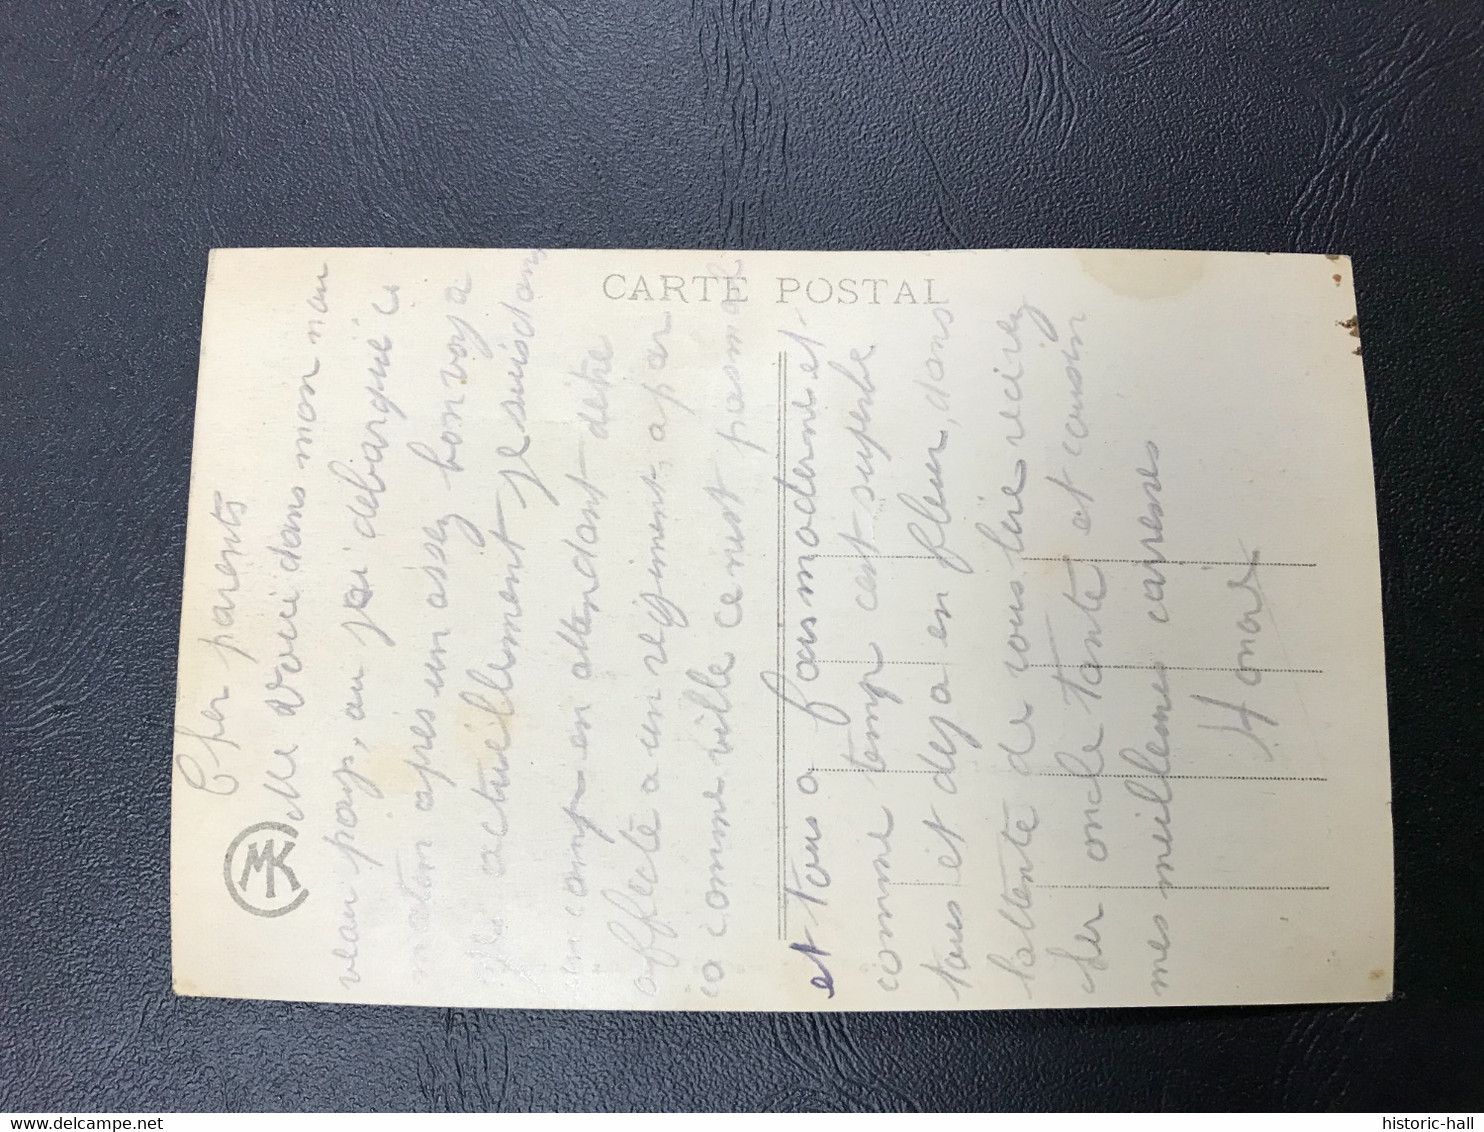 CARTE POSTAL
MK
Cher parents
Me voici dans mon nou
veau pays, ou jai debarqué ce
matin apres un assez bon voya
actuellement je suis dans
un camp en attendant dêtre
affecté a un regiment, a par
ca comme ville ce nest pas mal
et tous a fais moderne et
comme temp cest superbe
tous et deja en fleur, dans
lattente de vous lire recevez
cher oncle tante et cousin
mes meilleures caresses
Honoré
historic-hall